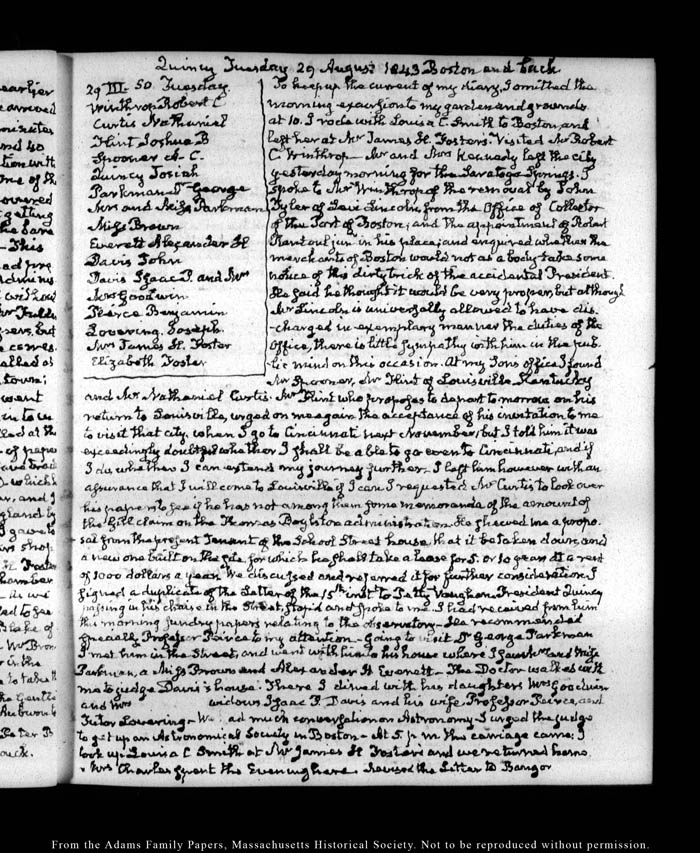 Quincy Tuesday 29 August 1843 Boston and back
29 III. 50 Tuesday.
Winthrop Robert C
Curtis Nathaniel
Flint Joshua B
Spooner W. C.
Quincy Josiah
Parkman Dr. George
Mrs and Miss Parkman
Miss Brown
Everett Alexander H
Davis John
Davis Isaac P. and Mrs
Mrs Goodwin
Peirce Benjamin
Lovering. Joseph
Mrs James H. Foster
Elizabeth Foster
To keep up the current of my diary, I omitted the
morning excursion to my garden and grounds
at 10. I rode with Louisa C. Smith to Boston, and
left her at Mr James H. Foster's. Visited Mr Robert
C. Winthrop— Mr and Mrs Kennedy left the city
yesterday morning for the Saratoga Springs. I
spoke to Mr Winthrop of the removal by John
Tyler of Levi Lincoln from the Office of Collector
of the Port of Boston, and the appointment of Robert
Rantoul jun. in his place; and enquired whether the
merchants of Boston would not as a body take some
notice of this dirty trick of the accidental President.
He said he thought it would be very proper, but although
Mr Lincoln is universally allowed to have dis-
-charged in exemplary manner the duties of the
Office, there is little sympathy with him in the pub-
lic mind on this occasion. At my Son's office I found
Mr Spooner, Mr Flint of Louisville Kentucky
and Mr Nathaniel Curtis. Mr Flint who proposes to depart to morrow on his
return to Louisville, urged on me again the acceptance of his invitation to me
to visit that city. when I go to Cincinnati next November, but I told him it was
exceedingly doubtful whether I shall be able to go even to Cincinnati, and if
I do, whether I can extend my journey further— I left him however with an
assurance that I will come to Louisville if I can. I requested Mr Curtis to look over
his papers to see if he has not among them some memoranda of the amount of
the Gill claim on the Thomas Boylston administration. He shewed me a propo-
sal from the present Tenant of the School Street house that it be taken down, and
a new one built on the site, for which he shall take a lease for 5. or 10 years at a rent
of 1000 dollars a year. We discussed and referred it for further consideration. I
signed a duplicate of the Letter of the 15th inst to Petty Vaughan. President Quincy
passing in his chaise in the Street, stop'd and spoke to me. I had received from him
this morning sundry papers relating to the observatory— He recommended
specially Professor Peirce to my attention— going to visit Dr George Parkman
I met him in the Street, and went with him to his house where I saw Mrs and Miss
Parkman, a Miss Brown and Alexander H Everett— The Doctor walked with
me to judge Davis's house. There I dined with his daughters Mrs Goodwin
and Mrs widow, Isaac P. Davis and his wife, Professor Peirce, and
Tutor Lovering— We had much conversation on Astronomy— I urged the judge
to get up an Astronomical Society in Boston— At 5. p m the carriage came; I
took up Louisa C Smith at Mr James H Foster's and we returned home
Mrs Charles spent the Evening here. Revised the Letter to Bangor
From the Adams Family Papers, Massachusetts Historical Society. Not to be reproduced without permission.